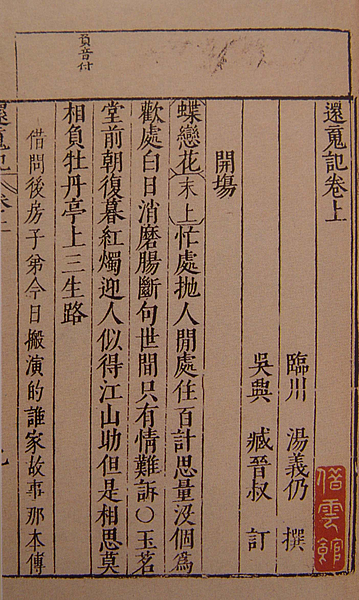 還䰟記卷上
臨川 湯義仍 撰
吳興 臧晉叔 訂
雲館
開塲
蝶戀花 末上 忙處拋人閒處住百計思量沒個為
歡處白日消磨腸斷句世間只有情難訴○玉茗
堂前朝復暮紅燭迎人似得江山助但是相思莫
相負牡丹亭上三生路
負音付
借問後房子弟今日搬演的誰家故事那本傳
還䰟記